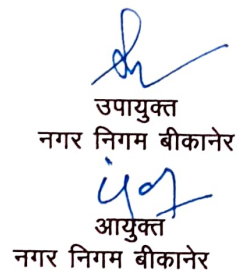 उपायुक्त
नगर निगम बीकानेर
आयुक्त
नगर निगम बीकानेर